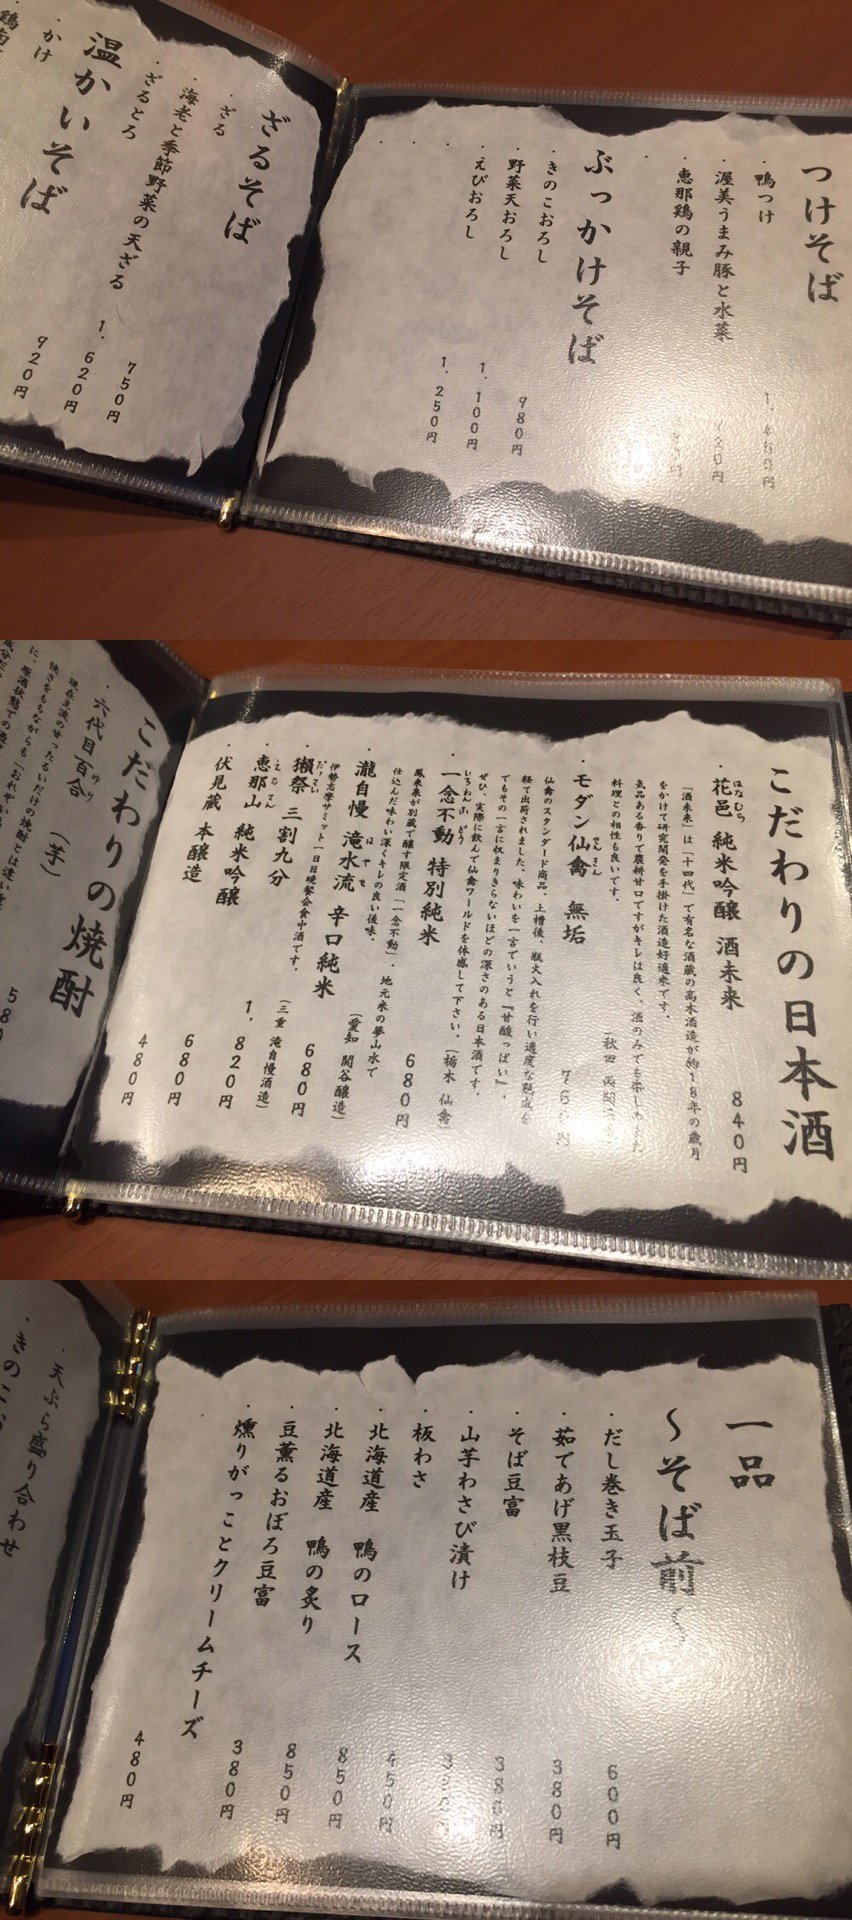 つけそば
・鴨つけ 1,450円
・渥美うまみ豚と水菜
・恵那鶏の親子
ぶっかけそば
・きのこおろし 980円
・野菜天おろし 1,100円
・えびおろし 1,250円
ざるそば
・ざる 750円
・海老と季節野菜の天ざる 1,620円
・ざるとろ 920円
温かいそば
・かけ
こだわりの日本酒
・花邑 純米吟醸 酒未来 840円
はなむら
「酒未来」は「十四代」で有名な酒蔵の高木酒造が約18年の歳月
をかけて研究開発を手掛けた酒造好適米です。
気品ある香りで濃耕甘口ですがキレは良く、酒のみでも楽しめ
料理との相性も良いです。
・モダン仙禽 無垢
せんきん
仙禽のスタンダード商品。上槽後、瓶火入れを行い適度な熟成を
経て出荷されました。味わいを一言でいうと『甘酸っぱい』。
でもその一言に収まりきらないほどの深さのある日本酒です。
ぜひ、実際に飲んで仙禽ワールドを体感して下さい。(栃木 仙禽)
・一念不動 特別純米 680円
いちねんふどう
鳳来泉が別蔵で醸す限定酒「一念不動」。地元米の夢山水で
仕込んだ味わい深くキレの良い後味。 (愛知 関谷醸造)
・瀧自慢 滝水流 辛口純米 680円
はやせ
伊勢志摩サミット一日目晩餐会食中酒です。 (三重 滝自慢酒造)
・獺祭 三割九分 1,820円
だっさい
・恵那山 純米吟醸 680円
えなさん
・伏見蔵 本醸造 480円
こだわりの焼酎
・六代目百合 (芋)
ゆり
現在主流の甘ったるいだけの焼酎とは違い
一品
〜そば前〜
・だし巻き玉子 600円
・茹であげ黒枝豆 380円
・そば豆富
・山芋わさび漬け
・板わさ 450円
・北海道産 鴨のロース 850円
・北海道産 鴨の炙り 850円
・豆薫るおぼろ豆富 380円
・燻りがっことクリームチーズ 480円
・天ぷら盛り合わせ